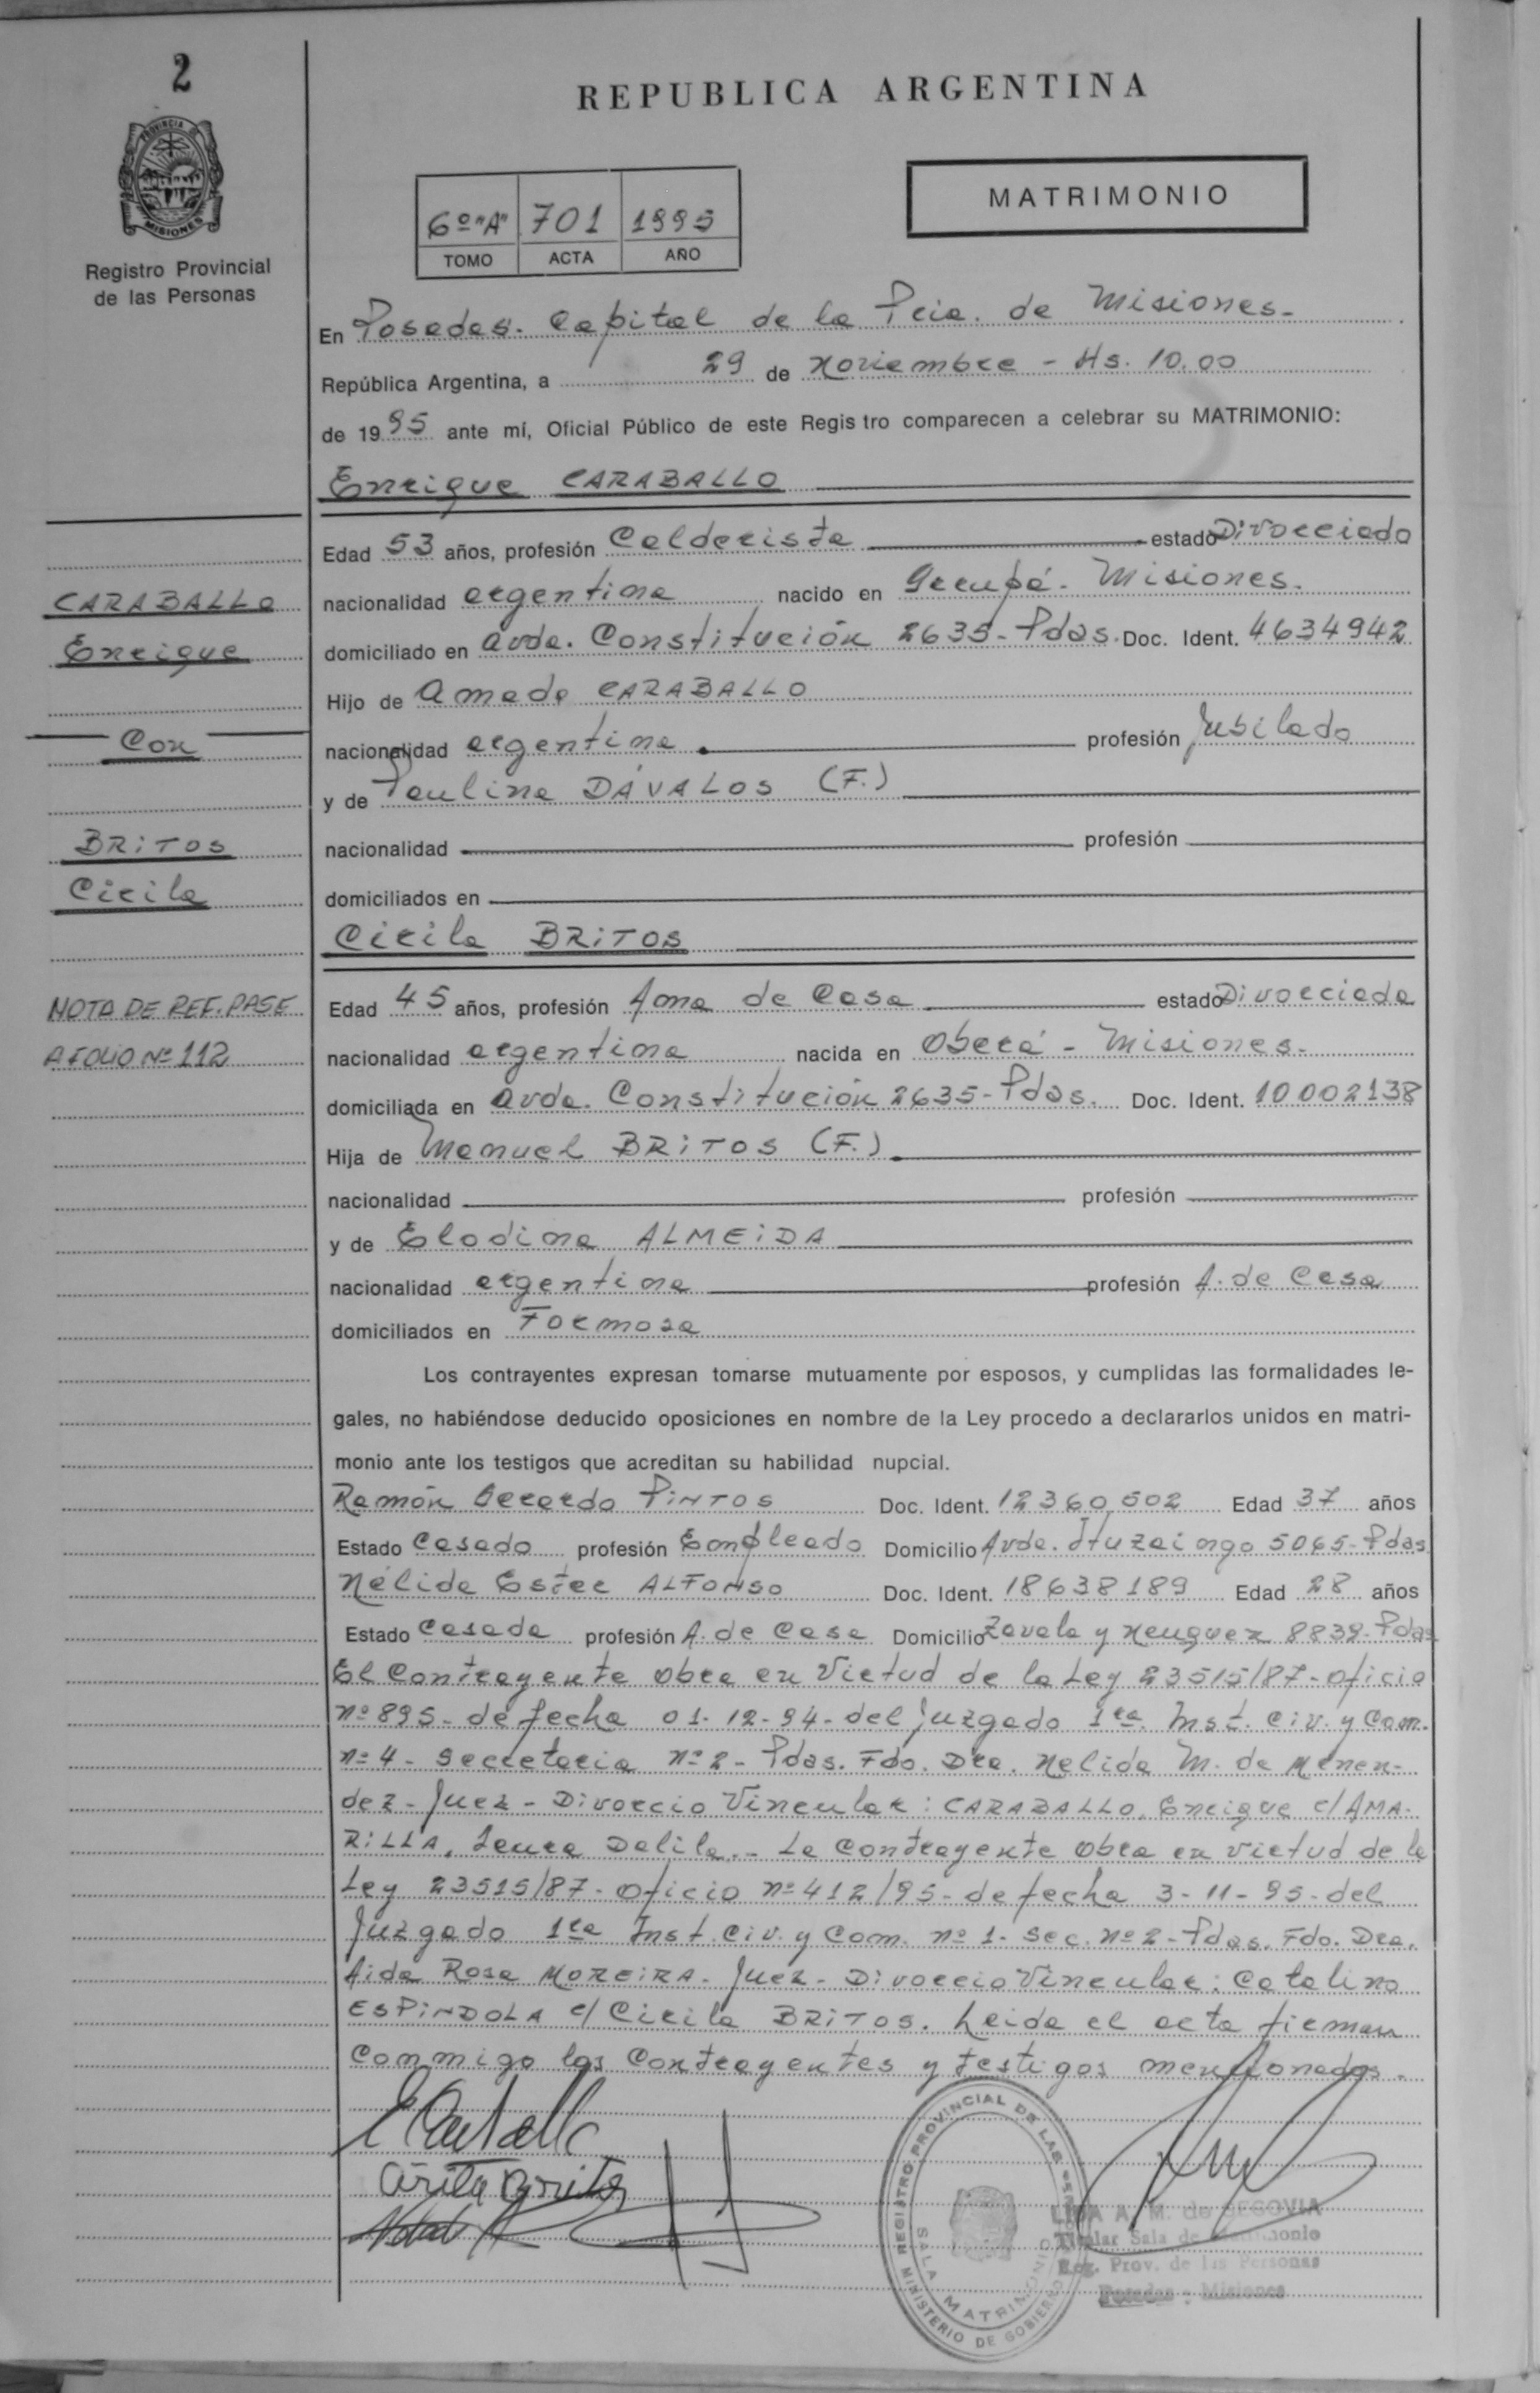 2
REPUBLICA ARGENTINA
PROVINCIA DE
MISIONES
Registro Provincial
de las Personas
6º "A" 701 1995
TOMO ACTA AÑO
MATRIMONIO
En Posadas. Capital de la Pcia. de Misiones.
República Argentina, a 29 de Noviembre - Hs. 10.00
de 1995 ante mí, Oficial Público de este Regis tro comparecen a celebrar su MATRIMONIO:
Enrique CARABALLO
Edad 53 años, profesión Calderista estado Divorciado
nacionalidad argentina nacido en Garupá - Misiones.
domiciliado en Avda. Constitución 2635 - Pdas. Doc. Ident. 4634942
Hijo de Amado CARABALLO
nacionalidad argentina. profesión Jubilado
y de Paulina DÁVALOS (F.)
nacionalidad profesión
domiciliados en
Cirila BRITOS
Edad 45 años, profesión Ama de Casa estado Divorciada
nacionalidad argentina nacida en Oberá - Misiones.
domiciliada en Avda. Constitución 2635 - Pdas. Doc. Ident. 10002138
Hija de Manuel BRITOS (F.)
nacionalidad profesión
y de Elodina ALMEIDA
nacionalidad argentina profesión A. de Casa
domiciliados en Formosa
CARABALLO
Enrique
Con
BRITOS
Cirila
NOTA DE REF. PASE
A FOLIO Nº 112
Los contrayentes expresan tomarse mutuamente por esposos, y cumplidas las formalidades le-
gales, no habiéndose deducido oposiciones en nombre de la Ley procedo a declararlos unidos en matri-
monio ante los testigos que acreditan su habilidad nupcial.
Ramón Gerardo PINTOS Doc. Ident. 12360502 Edad 37 años
Estado Casado profesión Empleado Domicilio Avda. Ituzaingo 5065 - Pdas.
Nélida Ester ALFONSO Doc. Ident. 18638189 Edad 28 años
Estado Casada profesión A. de Casa Domicilio Zavala y Neuquen 8839 - Pdas
El Contrayente obra en Virtud de la Ley 23515/87 - Oficio
nº 895 - de fecha 01-12-94 - del Juzgado 1ra. Inst. Civ. y Com.
nº 4 - Secretaria nº 2 - Pdas. Fdo. Dra. Nelida M. de Menen-
dez - Juez - Divorcio Vincular: CARABALLO, Enrique c/ AMA-
RILLA, Laura Dalila. - La Contrayente obra en virtud de la
Ley 23515/87 - Oficio nº 412/95 - de fecha 3-11-95 - del
Juzgado 1ra Inst. Civ. y Com. nº 1 - Sec. nº 2 - Pdas. Fdo. Dra.
Aida Rosa MOREIRA - Juez - Divorcio Vincular: Catalino
ESPINDOLA c/ Cirila BRITOS. Leida el acta firman
conmigo los Contrayentes y testigos mencionados.
Cirila Britos
REGISTRO PROVINCIAL DE LAS PERSONAS
SALA MATRIMONIO
MINISTERIO DE GOBIERNO
LIDA A. M. de SEGOVIA
Titular Sala de Matrimonio
Reg. Prov. de las Personas
Posadas - Misiones